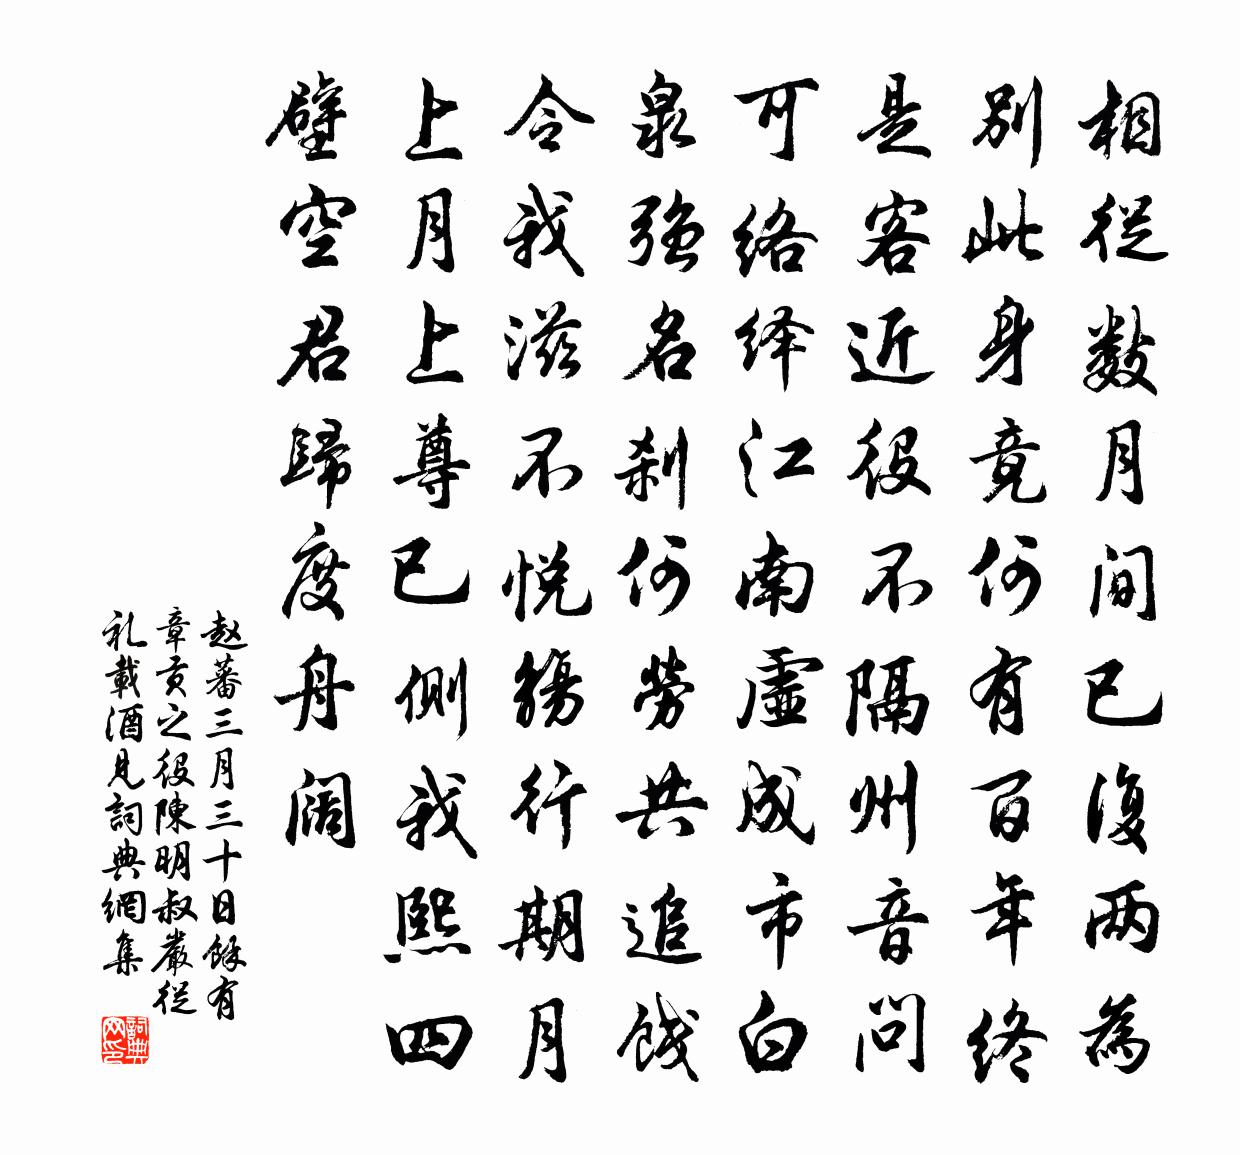 相從數月間已復两為
別此身竟何有百年終
是客近役不隔州音問
可络绎江南虛成市白
泉強名刹何勞共追餞
令我滋不悦觴行期月
上月上尊已側我熙四
壁空君歸度舟闊
赵蕃三月三十日餘有
章贡之役陳明叔嚴從
礼載酒見詞典網集
詞典网印